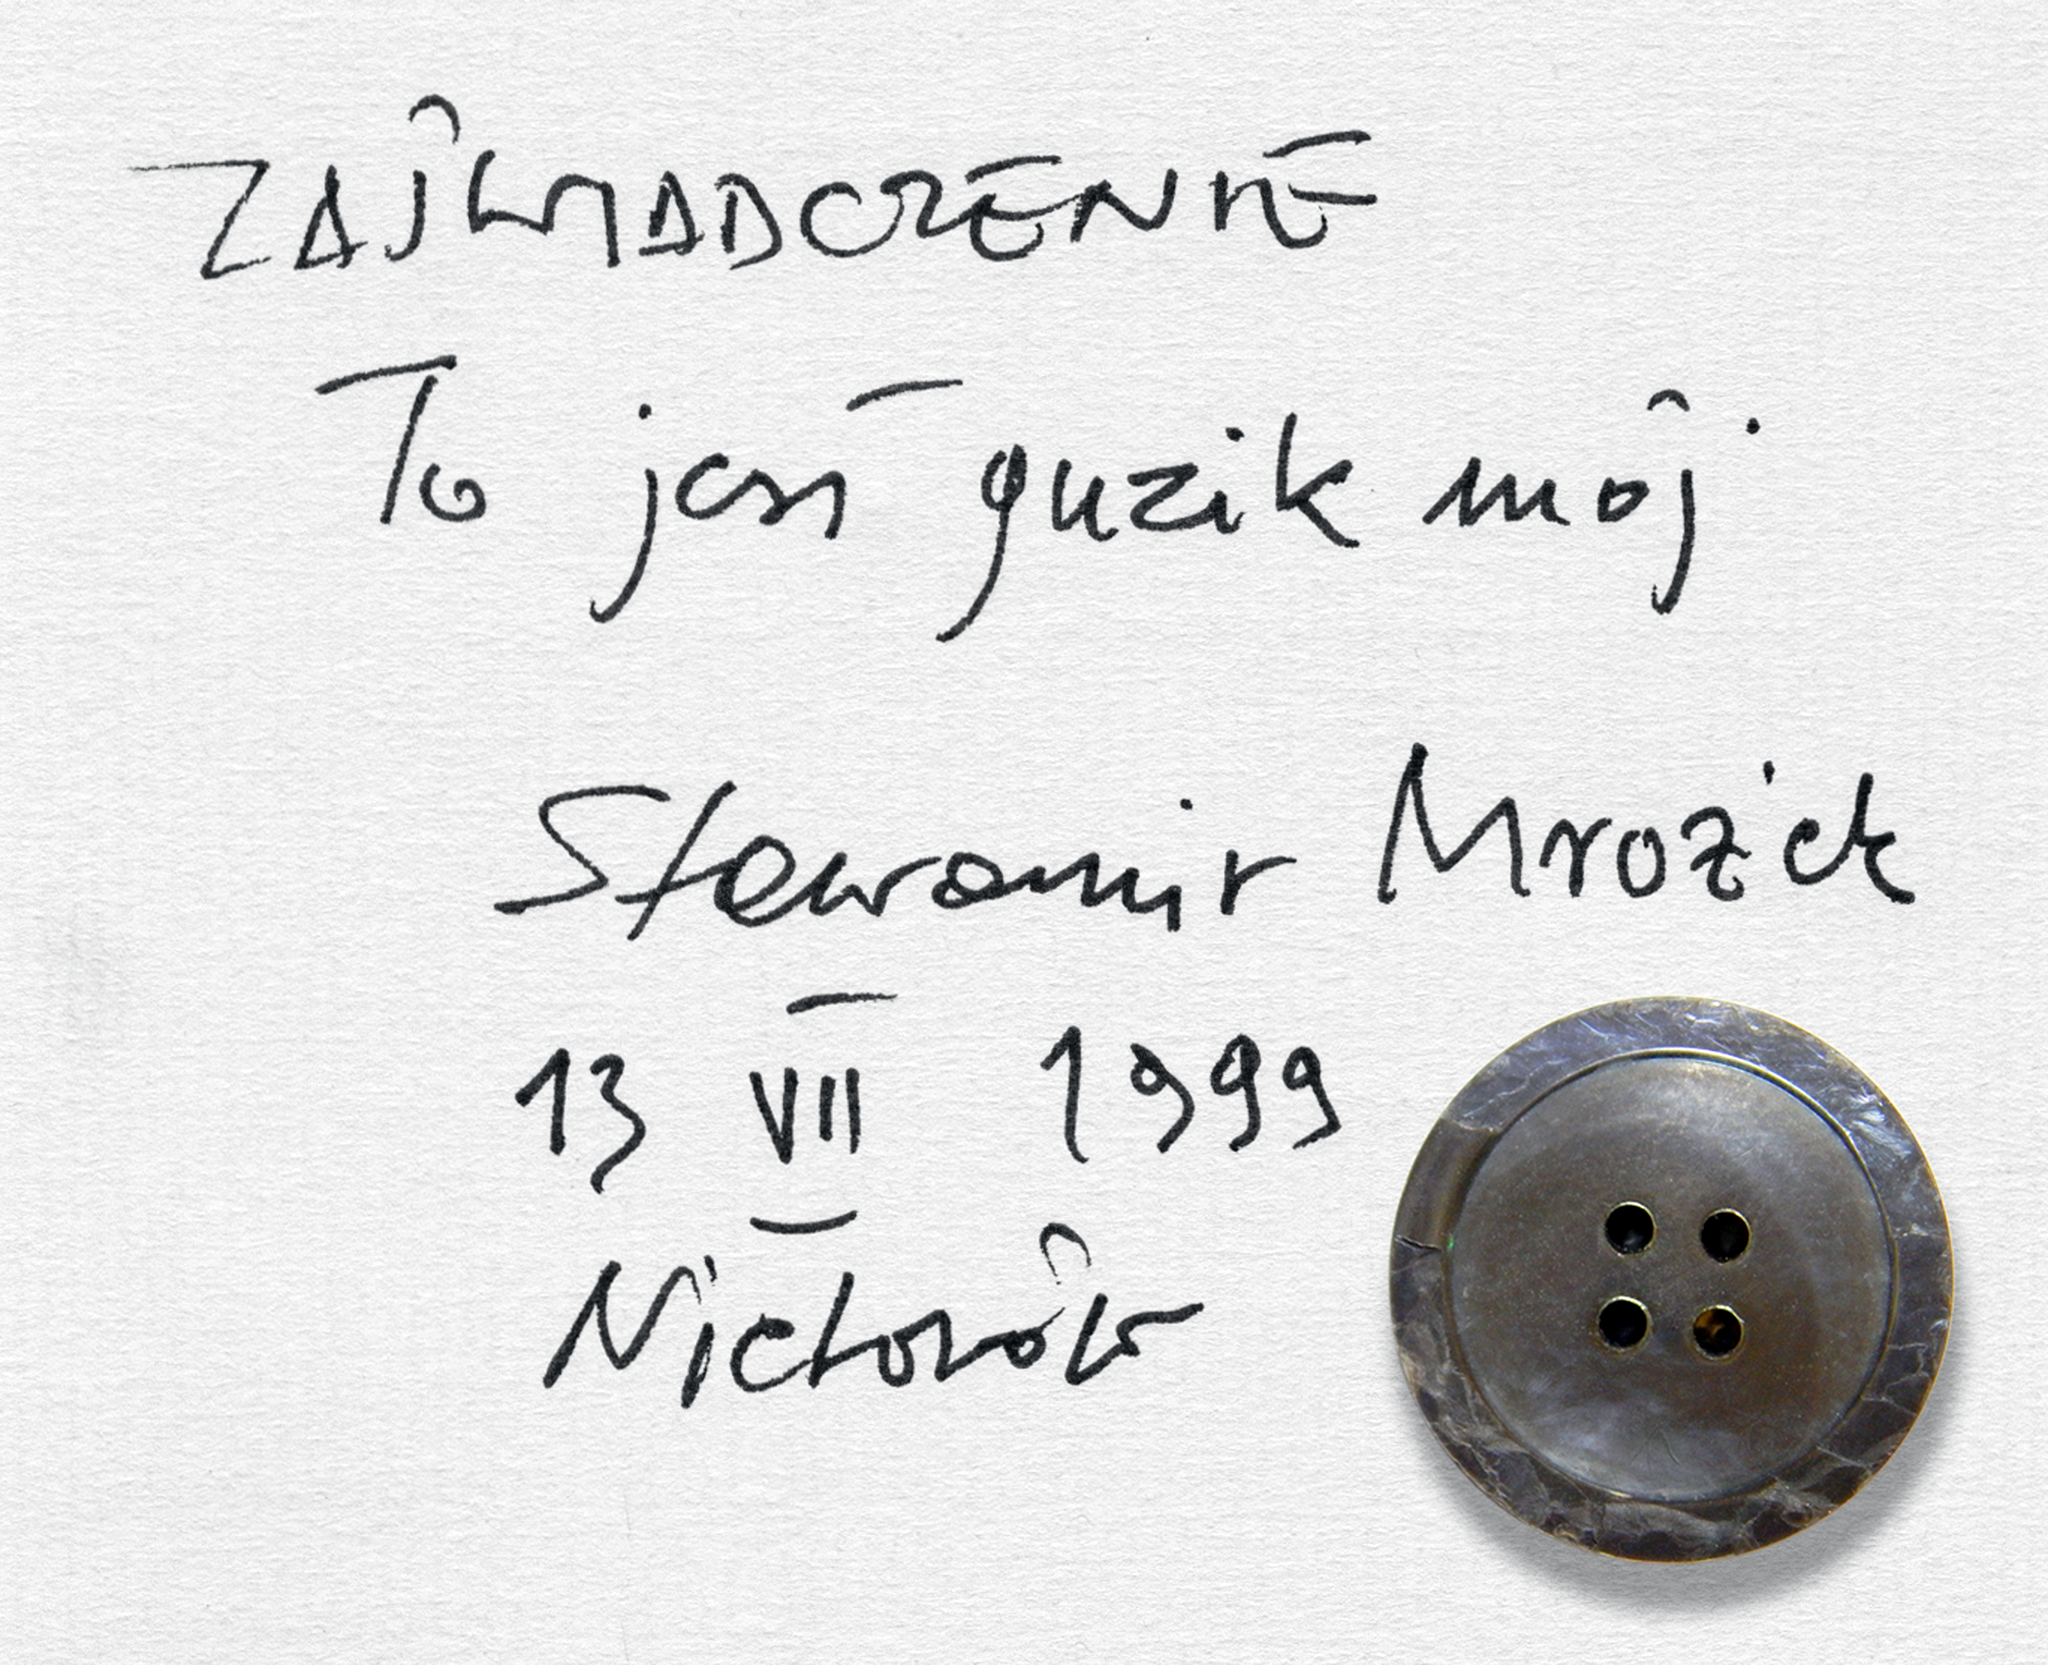 ZAŚWIADCZENIE
To jest guzik mój
Sławomir Mrożek
13 VII 1999
Nieborów